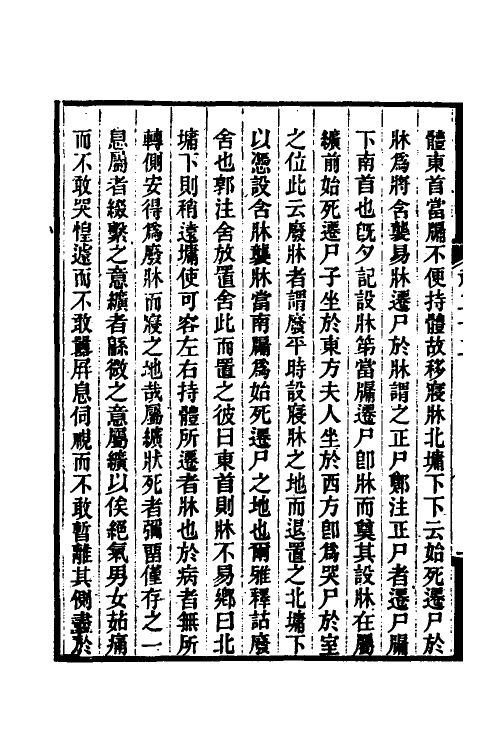 體東首當牖不便持體故移寢牀北墉下下云始死遷尸於
牀爲將含襲易牀遷尸於牀謂之正尸鄭注正尸者遷尸牖
下南首也旣夕記設牀第當牖遷尸卽牀而奠其設牀在屬
纊前始死遷尸子坐於東方夫人坐於西方卽爲哭尸於室
之位此云廢牀者謂廢平時設寢牀之地而退置之北墉下
以憑設含牀襲牀當南牖爲始死遷尸之地也爾雅釋詁廢
舍也郭注舍放置舍此而置之彼曰東首則牀不易鄉曰北
墉下則稍遠墉使可容左右持體所遷者牀也於病者無所
轉側安得爲廢牀而寢之地哉屬纊狀死者彌留僅存之一
息屬者綴繫之意纊者緜微之意屬纊以俟絕氣男女茹痛
而不敢哭惶遽而不敢囂屏息伺視而不敢暫離其側盡於